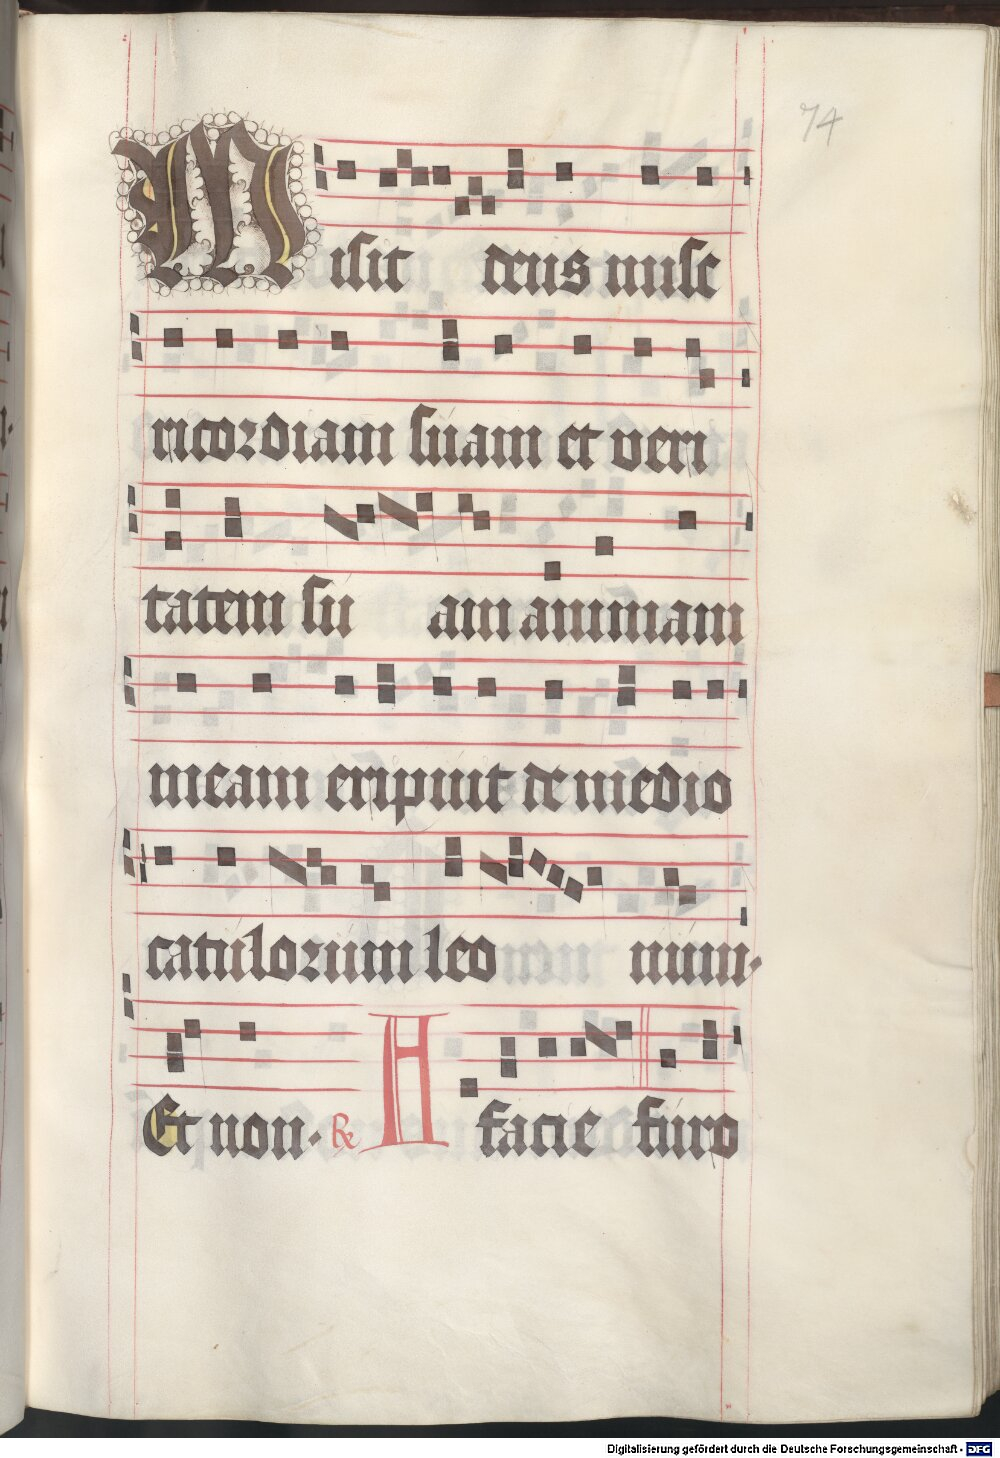 74
Misit deus mise
ricordiam suam et veri
tatem su am animam
meam eripuit de medio
catulorum leo num.
Et non. ℟ A facie furo
Digitalisierung gefördert durch die Deutsche Forschungsgemeinschaft - DFG